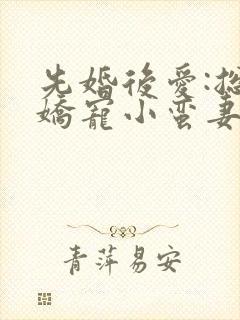 先婚後愛:
嬌寵小蛮妻
青萍易安